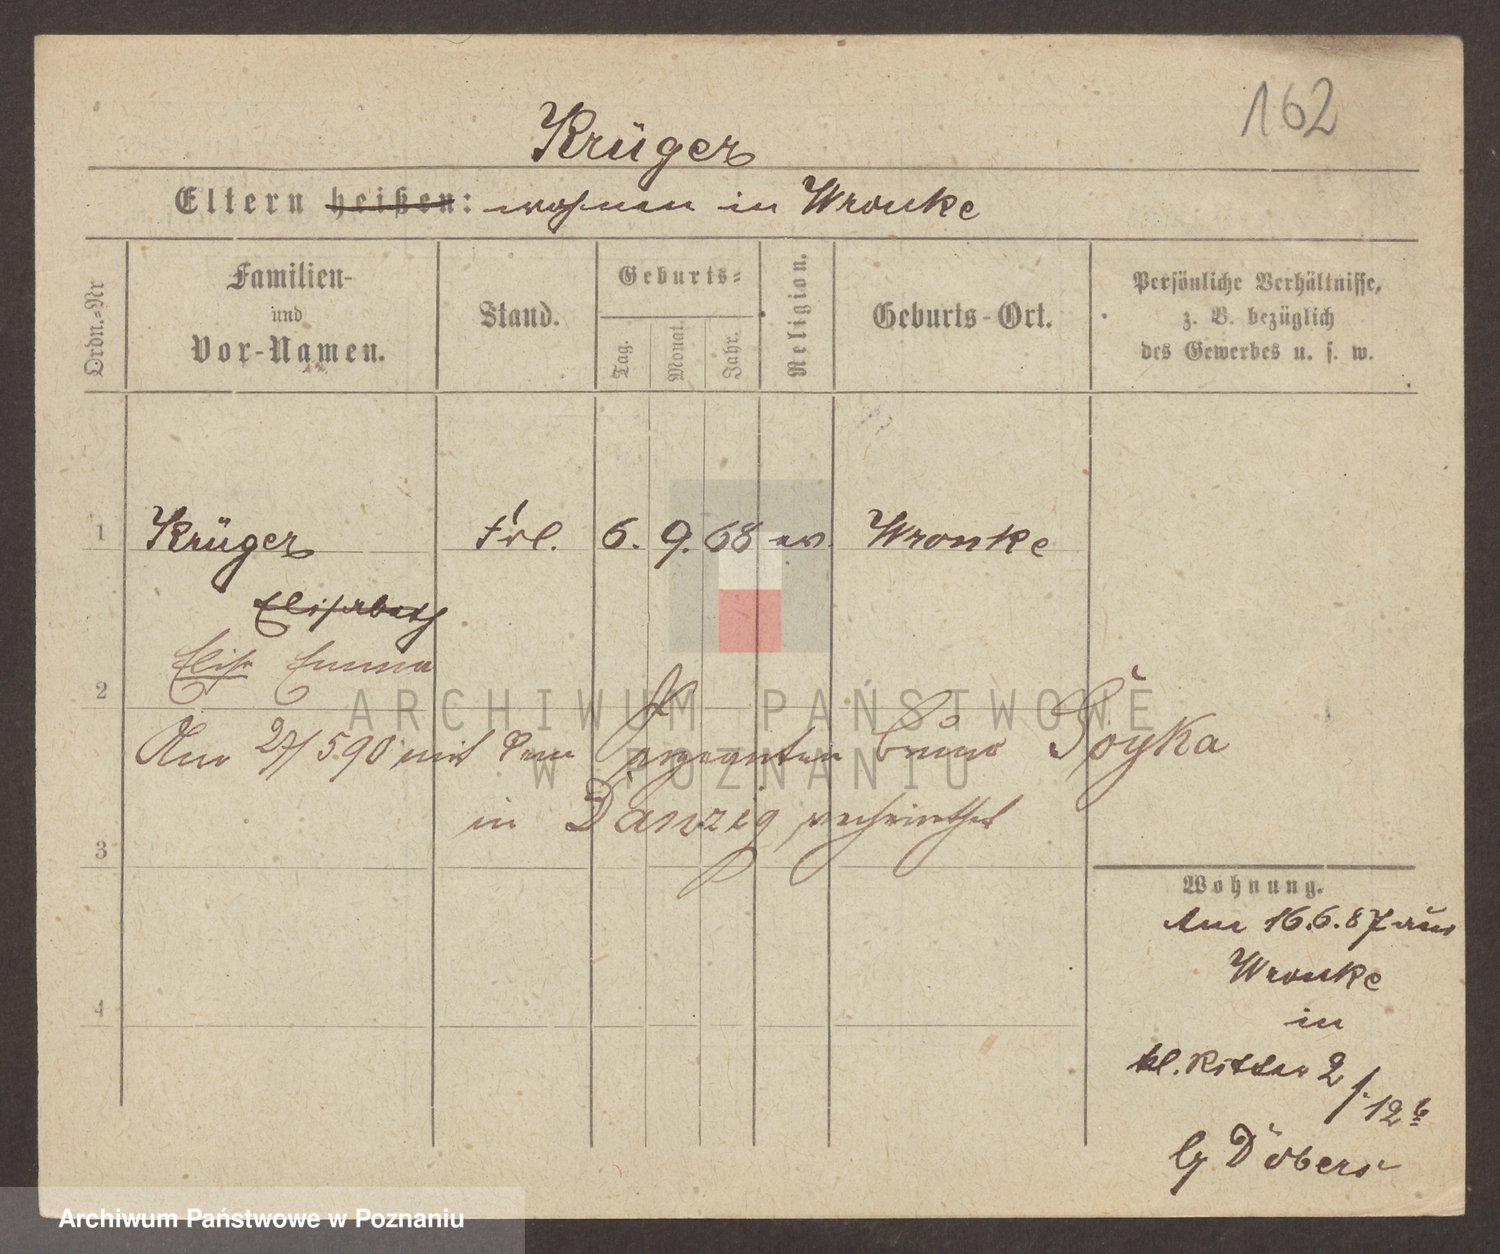 162
Krüger
Eltern heißen: wohnen in Wronke
Ordn.-Nr
Familien-
und
Vor-Namen.
Stand.
Geburts-
Tag.
Monat.
Jahr.
Religion.
Geburts-Ort.
Persönliche Verhältnisse,
z. B. bezüglich
des Gewerbes u. s. w.
1 Krüger Frl. 6. 9. 68 ev. Wronke
Elisabeth
Elise Emma
2
ARCHIWUM PAŃSTWOWE
W POZNANIU
Am 27/5 90 mit dem Sergeanten Bruno Goyka
in Danzig verheirathet
3
Wohnung.
Am 16.6.87 aus
Wronke
in
kl. Ritter 2
/. 12
4
Döbers
Archiwum Państwowe w Poznaniu